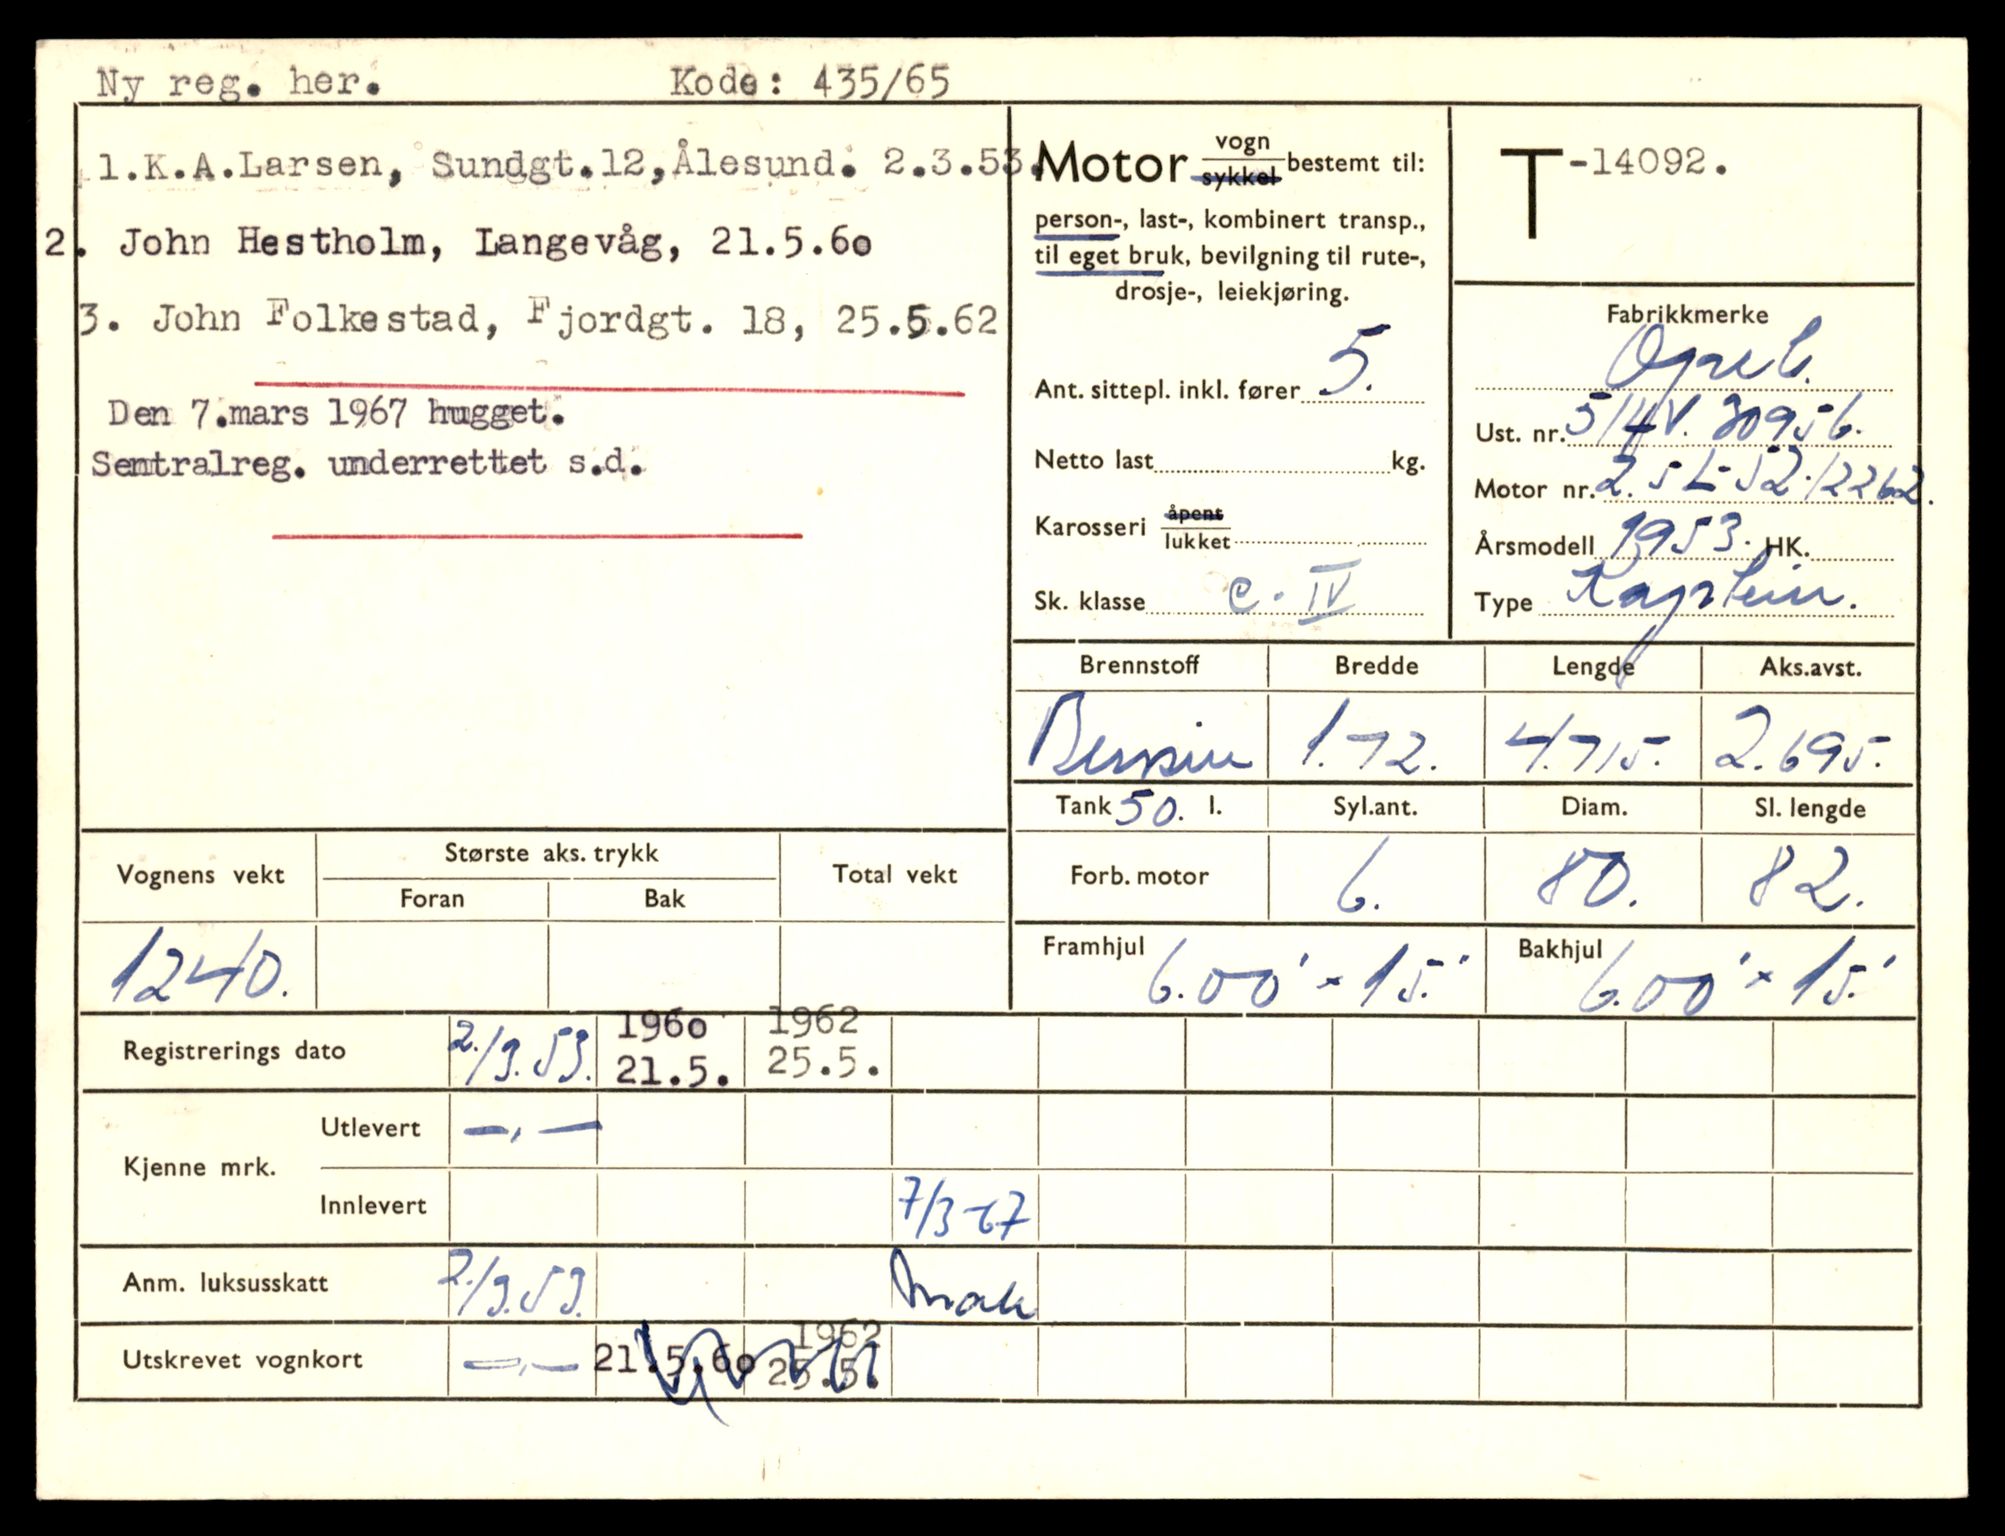 Ny reg. her. Kode: 435/65
1.K.A.Larsen, Sundgt.12,Ålesund. 2.3.53.
2. John Hestholm, Langevåg, 21.5.6o
3. John Folkestad, Fjordgt. 18, 25.5.62
Den 7.mars 1967 hugget.
Semtralreg. underrettet s.d.
Motor vogn sykkel bestemt til:
person-, last-, kombinert transp.,
til eget bruk, bevilgning til rute-,
drosje-, leiekjøring.
Ant. sittepl. inkl. fører 5.
Netto last kg.
Karosseri åpent lukket
Sk. klasse c. IV
T-14092.
Fabrikkmerke
Opel.
Ust. nr. 51HV. 30956.
Motor nr. 2.5L-52.12262.
Årsmodell 1953. HK.
Type Kaptein.
Brennstoff Bredde Lengde Aks.avst.
Bensin 1.72. 4.715. 2.695.
Tank 50. l. Syl.ant. Diam. Sl. lengde
Forb. motor 6. 80. 82.
Framhjul 6.00' × 15.' Bakhjul 6.00' × 15.'
Vognens vekt Største aks. trykk Total vekt
Foran Bak
1240.
Registrerings dato 2./3.53. 196o 21.5. 1962 25.5.
Kjenne mrk. Utlevert —,—
Innlevert 7/3-67
Anm. luksusskatt 2./3.53.
Utskrevet vognkort —,— 21.5.6o 1962 25.5.